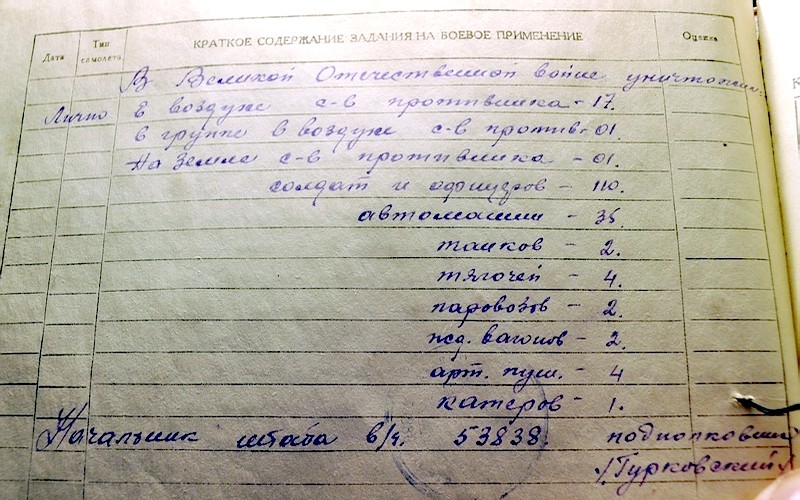 Дата
Тип самолета
КРАТКОЕ СОДЕРЖАНИЕ ЗАДАНИЯ НА БОЕВОЕ ПРИМЕНЕНИЕ
Оценка
В Великой Отечественной войне уничтожил:
Лично в воздухе с-в противника - 17.
в группе в воздухе с-в против. - 01.
На земле с-в противника - 01.
солдат и офицеров - 110.
автомашин - 35.
танков - 2.
тягочей - 4.
паровозов - 2.
жд. вагонов - 2.
арт. пуш. - 4
катеров - 1.
Начальник штаба в/ч. 53838. подполковник
/Турковский/